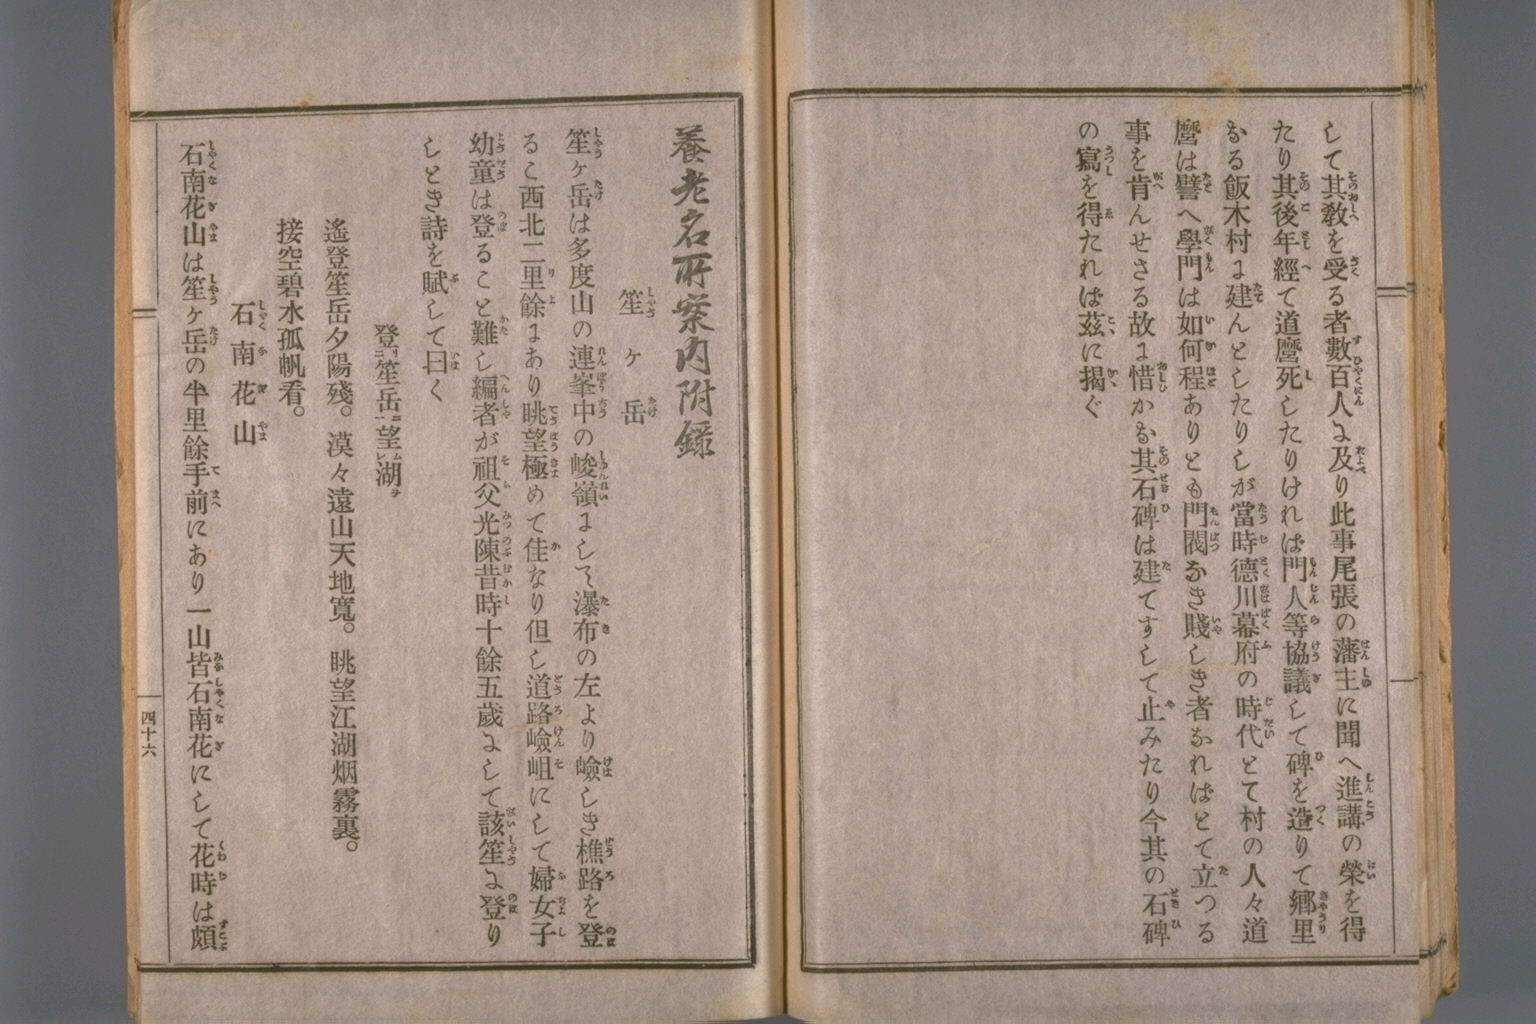 して其敎を受る者數百人に及り此事尾張の藩主に聞へ進講の榮を得
たり其後年經て道麿死したりければ門人等協議して碑を造りて鄕里
なる飯木村に建んとしたりしが當時德川幕府の時代とて村の人々道
麿は譬へ學門は如何程ありとも門閥なき賤しき者なればとて立つる
事を肯んせさる故に惜かな其石碑は建てすして止みたり今其の石碑
の寫を得たれば茲に揭ぐ
養老名所案内附錄
笙ヶ岳
笙ヶ岳は多度山の連峯中の峻嶺にして瀑布の左より嶮しき樵路を登
るこ西北二里餘にあり眺望極めて佳なり但し道路嶮岨にして婦女子
幼童は登ること難し編者が祖父光陳昔時十餘五歲にして該笙に登り
しとき詩を賦して曰く
登笙岳望湖
遙登笙岳夕陽殘。漠々遠山天地寬。眺望江湖烟霧裏。
接空碧水孤帆看。
石南花山
石南花山は笙ヶ岳の半里餘手前にあり一山皆石南花にして花時は頗
四十六